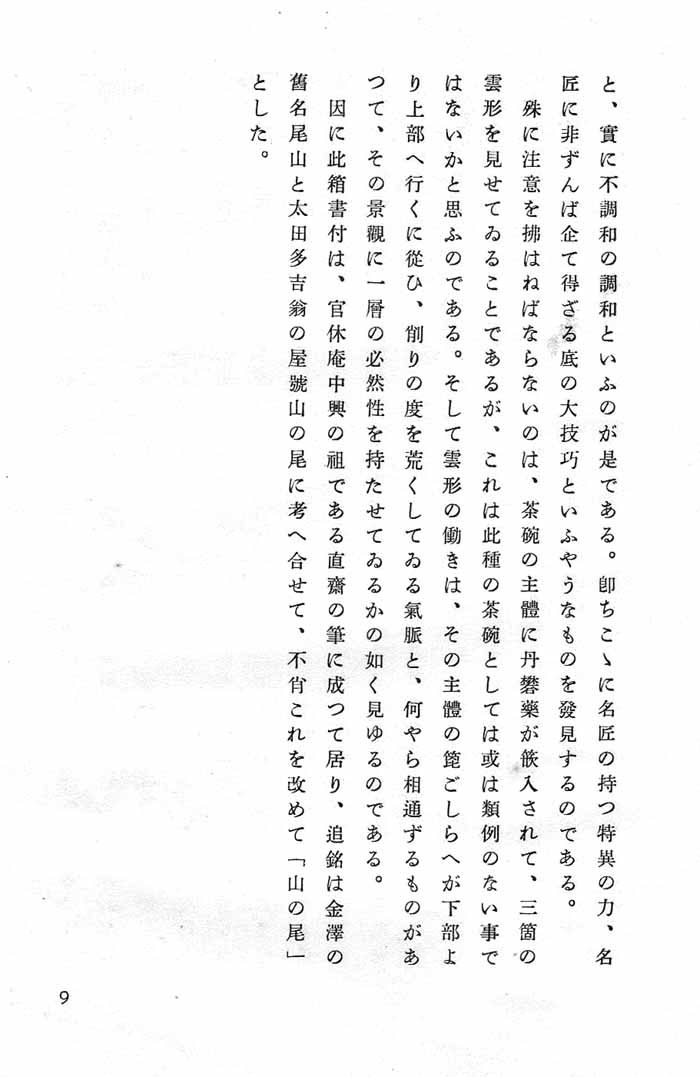 と、實に不調和の調和といふのが是である。卽ちこゝに名匠の持つ特異の力、名
匠に非ずんば企て得ざる底の大技巧といふやうなものを發見するのである。
殊に注意を拂はねばならないのは、茶碗の主體に丹礬藥が嵌入されて、三箇の
雲形を見せてゐることであるが、これは此種の茶碗としては或は類例のない事で
はないかと思ふのである。そして雲形の働きは、その主體の箆ごしらへが下部よ
り上部へ行くに從ひ、削りの度を荒くしてゐる氣脈と、何やら相通ずるものがあ
つて、その景觀に一層の必然性を持たせてゐるかの如く見ゆるのである。
因に此箱書付は、官休庵中興の祖である直齋の筆に成つて居り、追銘は金澤の
舊名尾山と太田多吉翁の屋號山の尾に考へ合せて、不肖これを改めて「山の尾」
とした。
9